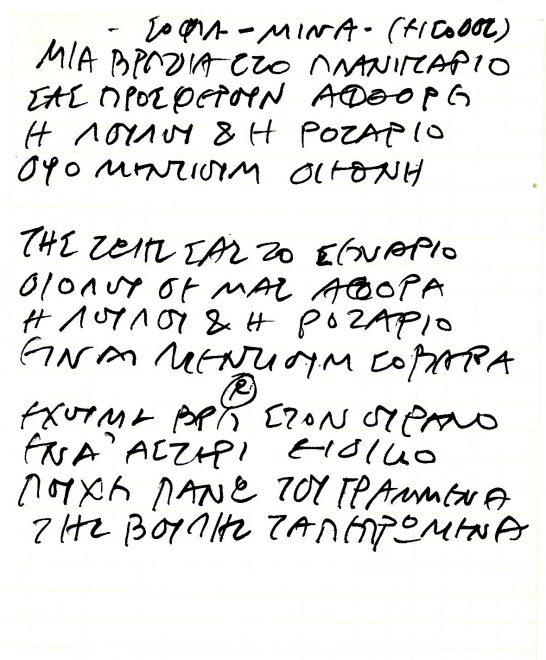 - ΣΟΦΙΑ - ΜΙΝΑ - (ΕΙΣΟΔΟΣ)
ΜΙΑ ΒΡΑΔΙΑ ΣΤΟ ΠΛΑΝΙΤΑΡΙΟ
ΣΑΣ ΠΡΟΣΦΕΡΟΥΝ ΑΦΘΟΡΗ
Η ΛΟΥΛΟΥ & Η ΡΟΖΑΡΙΟ
ΔΥΟ ΜΕΝΤΙΟΥΜ
ΤΗΣ ΖΩΗΣ ΣΑΣ ΤΟ ΣΕΝΑΡΙΟ
ΔΙΟΛΟΥ ΔΕ ΜΑΣ ΑΦΟΡΑ
Η ΛΟΥΛΟΥ & Η ΡΟΖΑΡΙΟ
ΕΙΝΑΙ ΜΕΝΤΙΟΥΜ ΣΟΒΑΡΑ
ΕΧΟΥΜΕ ΒΡΕΙ ΣΤΟΝ ΟΥΡΑΝΟ
ΕΝΑ ΑΣΤΕΡΙ ΕΙΔΙΚΟ
ΠΟΥΧΕΙ ΠΑΝΩ ΤΟΥ ΓΡΑΜΜΕΝΑ
ΤΗΣ ΒΟΥΛΗΣ ΤΑ ΠΕΠΡΩΜΕΝΑ